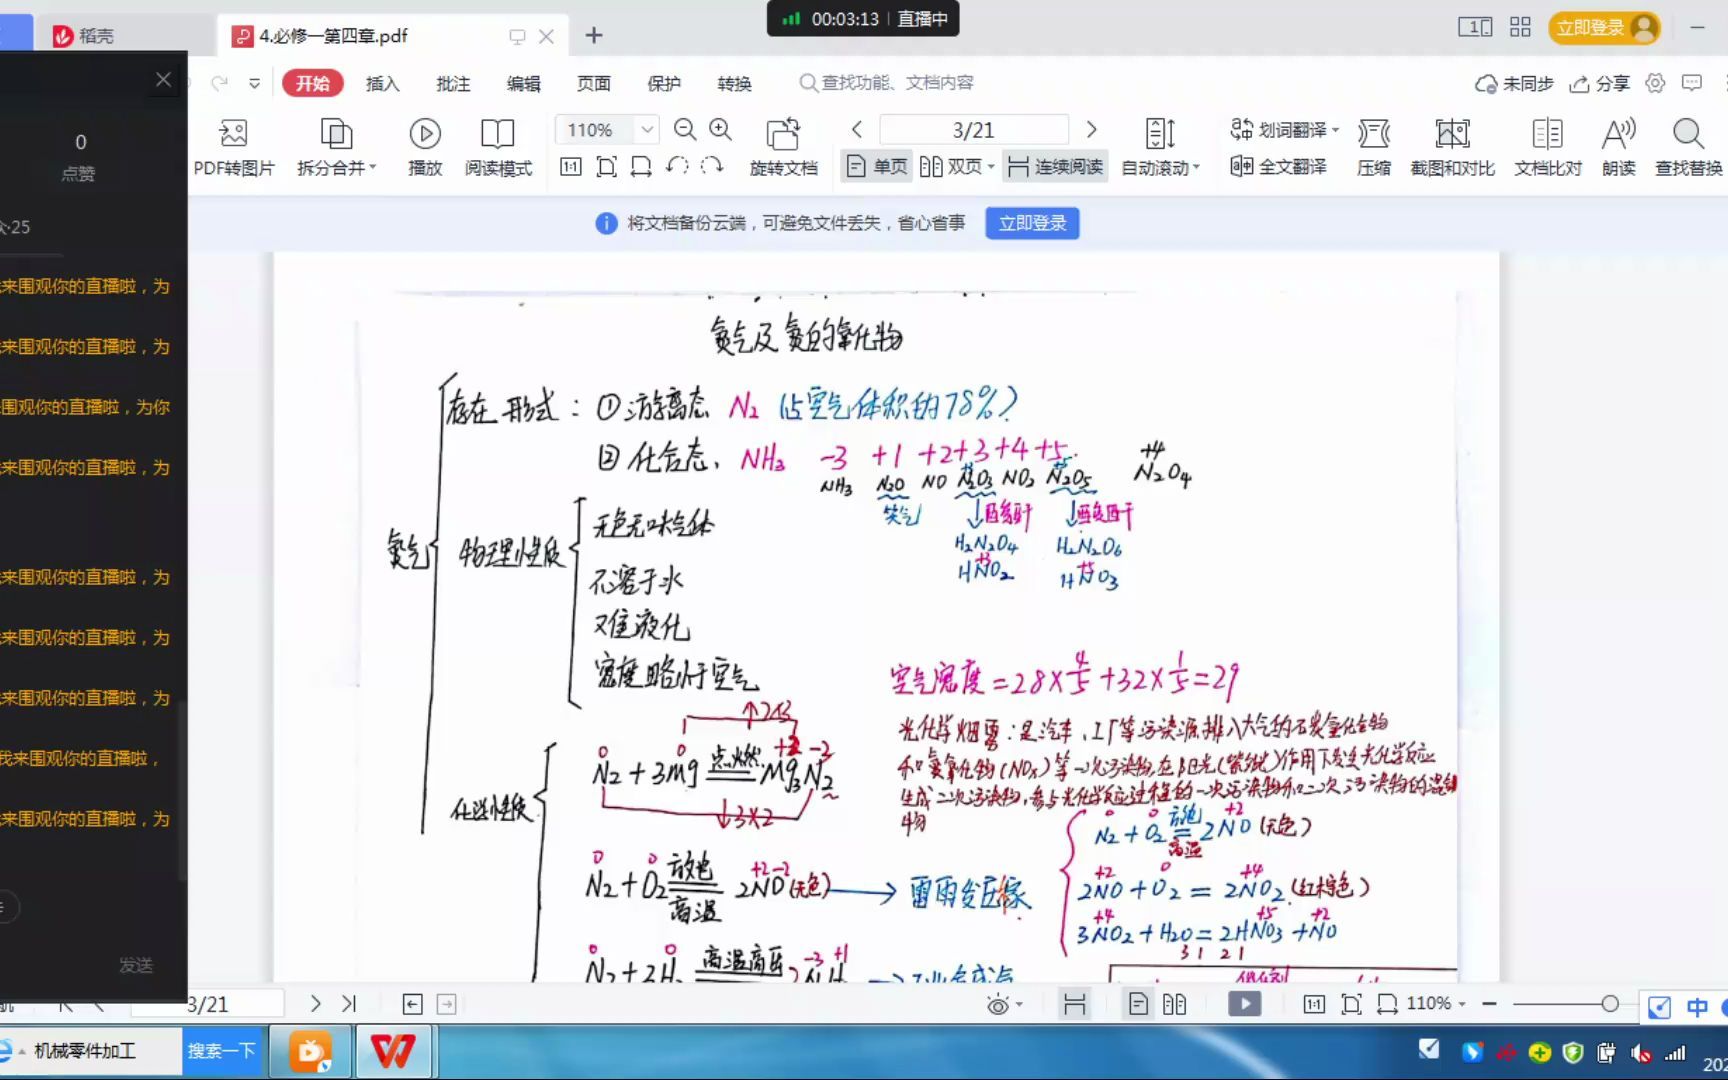 00:03:13 直播中
稻壳
4.必修一第四章.pdf
立即登录
开始 插入 批注 编辑 页面 保护 转换 查找功能、文档内容 未同步 分享
PDF转图片 拆分合并 播放 阅读模式 110% 旋转文档 3/21 单页 双页 连续阅读 自动滚动 划词翻译 全文翻译 压缩 截图和对比 文档比对 朗读 查找替换
将文档备份云端，可避免文件丢失，省心省事 立即登录
0
点赞
·25
来围观你的直播啦，为
来围观你的直播啦，为
围观你的直播啦，为你
来围观你的直播啦，为
来围观你的直播啦，为
来围观你的直播啦，为
来围观你的直播啦，为
我来围观你的直播啦，
来围观你的直播啦，为
发送
氮气及氮的氧化物
存在形式：①游离态 N₂ (占空气体积的78%)
②化合态， NH₃ -3 +1 +2 +3 +4 +5
NH₃ N₂O NO N₂O₃ NO₂ N₂O₅ +4 N₂O₄
笑气 ↓酸酐 ↓酸酐
H₂N₂O₄ H₂N₂O₆
HNO₂ HNO₃
氮气 物理性质
无色无味气体
不溶于水
难液化
密度略小于空气
空气密度=28×4/5+32×1/5=29
光化学烟雾：是汽车、工厂等污染源排入大气的碳氢化合物
和氮氧化物(NOx)等一次污染物，在阳光(紫外线)作用下发生光化学反应
生成二次污染物，参与光化学反应过程的一次污染物和二次污染物的混合
物
化学性质
↑2×3
N₂+3Mg 点燃 Mg₃N₂
↓3×2
N₂+O₂ 放电 高温 2NO(无色) → 雷雨发庄稼
N₂+O₂ 放电 高温 2NO (无色)
2NO+O₂=2NO₂ (红棕色)
3NO₂+H₂O=2HNO₃+NO
3 1 2 1
N₂+3H₂ 高温高压 2NH₃
3/21 110%
机械零件加工 搜索一下
中
202